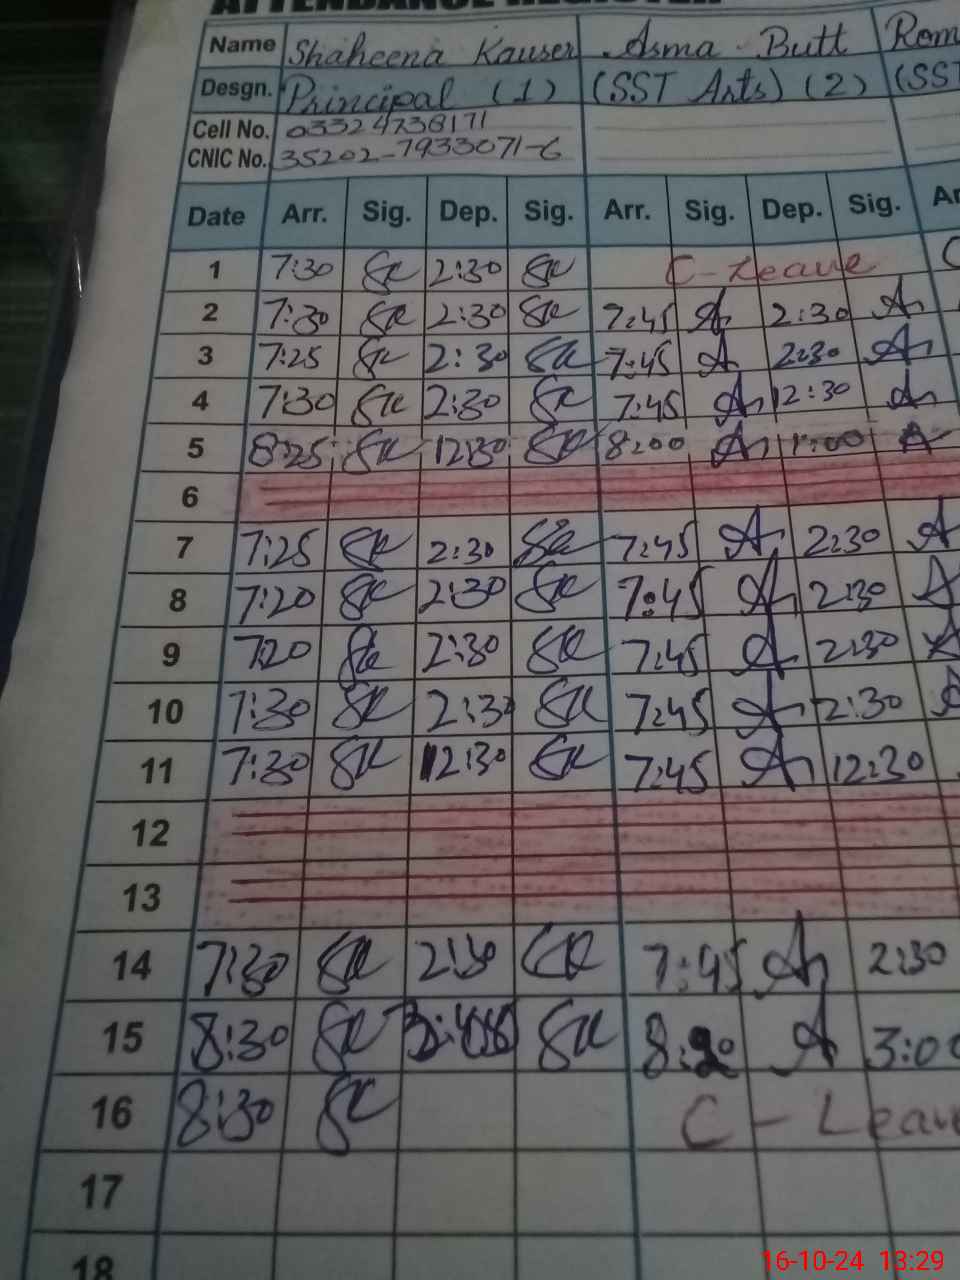 ATTENDANCE REGISTER
Name Shaheena Kauser Asma Butt Rom
Desgn. Principal (1) (SST Arts) (2) (SST
Cell No. 03324738171
CNIC No. 35202-7933071-6
Date Arr. Sig. Dep. Sig. Arr. Sig. Dep. Sig. Ar
1 7:30 SK 2:30 SK C-Leave C
2 7:30 SK 2:30 SK 7:45 A 2:30 A
3 7:25 SK 2:30 SK 7:45 A 2:30 A
4 7:30 SK 2:30 SK 7:45 A 12:30 A
5 8:25 SK 12:30 SK 8:00 A 1:00 A
6
7 7:25 SK 2:30 SK 7:45 A 2:30 A
8 7:20 SK 2:30 SK 7:45 A 2:30 A
9 7:20 SK 2:30 SK 7:45 A 2:30 A
10 7:30 SK 2:30 SK 7:45 A 2:30 A
11 7:30 SK 12:30 SK 7:45 A 12:30
12
13
14 7:30 SK 2:30 SK 7:45 A 2:30
15 8:30 SK SK A 3:00
16 8:30 SK C-Leave
17
18
16-10-24 13:29